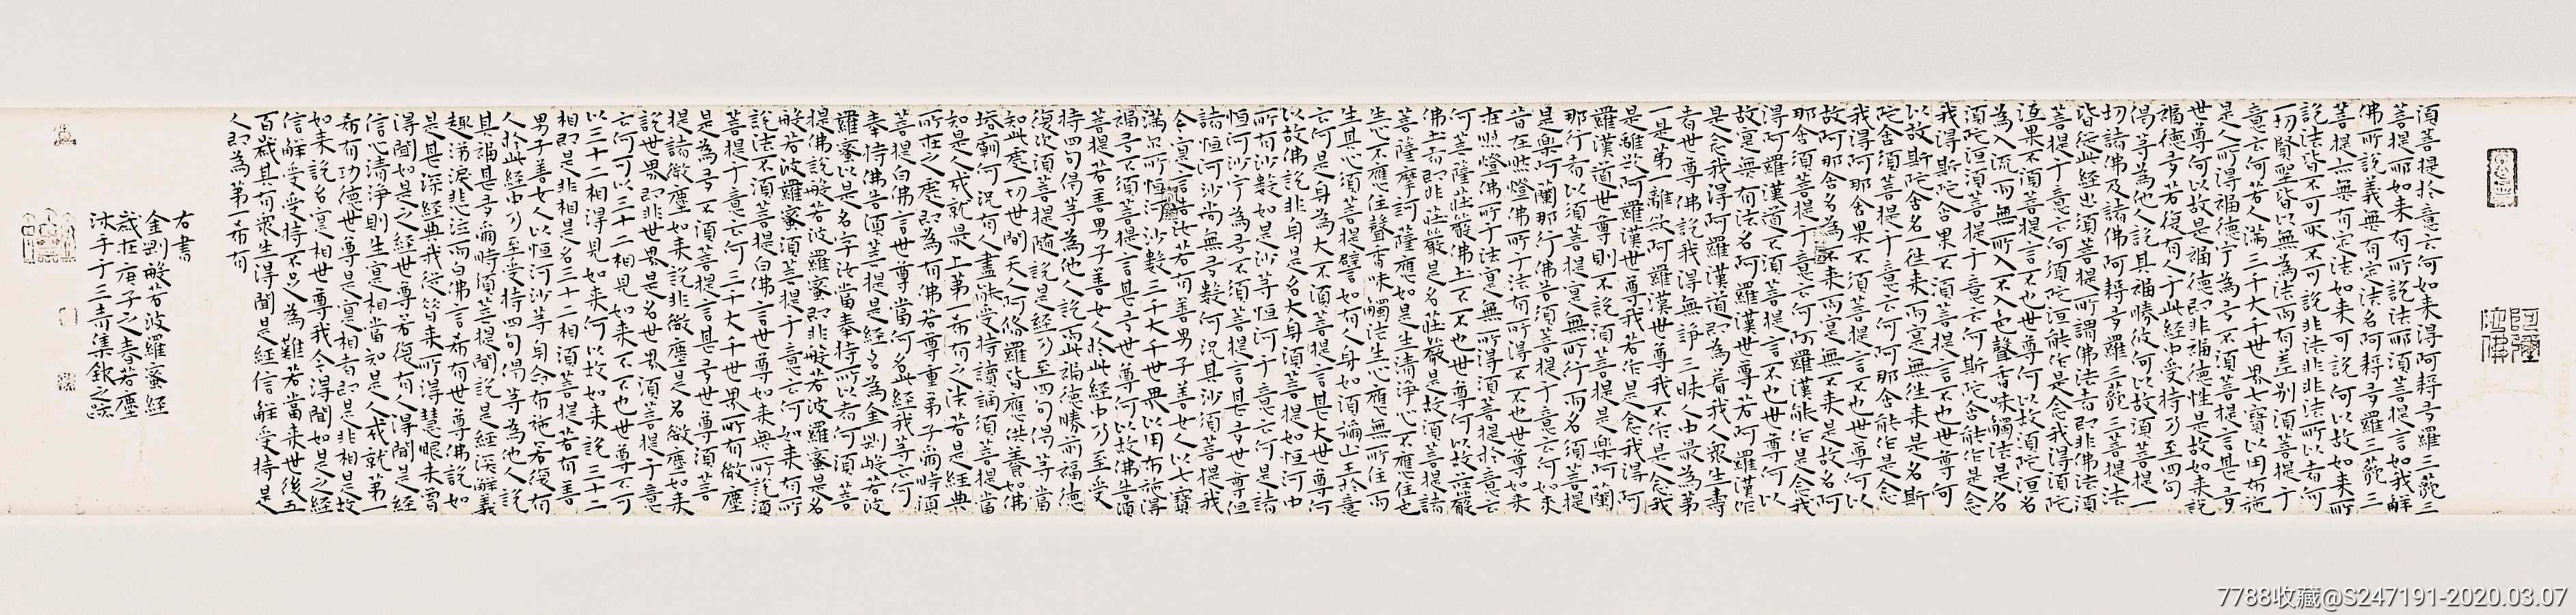 阿彌陀佛
須菩提於意云何如来得阿耨多羅三藐三
菩提耶如来有所說法耶須菩提言如我解
佛所說義無有定法名阿耨多羅三藐三
菩提亦無有定法如来可說何以故如来所
說法皆不可取不可說非法非非法所以者何
一切賢聖皆以無為法而有差別須菩提于
意云何若人滿三千大千世界七寶以用布施
是人所得福德寧為多不須菩提言甚多
世尊何以故是福德即非福德性是故如来說
福德多若復有人于此經中受持乃至四句
偈等為他人說其福勝彼何以故須菩提一
切諸佛及諸佛阿耨多羅三藐三菩提法
皆從此經出須菩提所謂佛法者即非佛法須
菩提于意云何須陀洹能作是念我得須陀
洹果不須菩提言不也世尊何以故須陀洹名
為入流而無所入不入色聲香味觸法是名
須陀洹須菩提于意云何斯陀含能作是念
我得斯陀含果不須菩提言不也世尊何
以故斯陀含名一往来而實無往来是名斯
陀含須菩提于意云何阿那含能作是念
我得阿那含果不須菩提言不也世尊何以
故阿那含名為不来而實無不来是故名阿
那含須菩提于意云何阿羅漢能作是念我
得阿羅漢道不須菩提言不也世尊何以
故實無有法名阿羅漢世尊若阿羅漢作
是念我得阿羅漢道即為着我人眾生壽
者世尊佛說我得無諍三昧人中最為第
一是第一離欲阿羅漢世尊我不作是念我
是離欲阿羅漢世尊我若作是念我得阿
羅漢道世尊則不說須菩提是樂阿蘭
那行者以須菩提實無所行而名須菩提
是樂阿蘭那行佛告須菩提于意云何如来
昔在然燈佛所于法有所得不不也世尊如来
在然燈佛所于法實無所得須菩提於意云
何菩薩莊嚴佛土不不也世尊何以故莊嚴
佛土者即非莊嚴是名莊嚴是故須菩提諸
菩薩摩訶薩應如是生清淨心不應住色
生心不應住聲香味觸法生心應無所住而
生其心須菩提譬如有人身如須彌山王於意
云何是身為大不須菩提言甚大世尊何
以故佛說非身是名大身須菩提如恒河中
所有沙數如是沙等恒河于意云何是諸
恒河沙寧為多不須菩提言甚多世尊但
諸恒河沙尚無多數何況其沙須菩提我
今實言告汝若有善男子善女人以七寶
滿尔所恒河沙數三千大千世界以用布施得
福多不須菩提言甚多世尊何以故佛告須
菩提若善男子善女人於此經中乃至受
持四句偈等為他人說而此福德勝前福德
復次須菩提隨說是經乃至四句偈等當
知此處一切世間天人阿修羅皆應供養如佛
塔廟何況有人盡能受持讀誦須菩提當
知是人成就最上第一希有之法若是經典
所在之處即為有佛若尊重弟子爾時須
菩提白佛言世尊當何名此經我等云何
奉持佛告須菩提是經名為金剛般若波
羅蜜以是名字汝當奉持所以者何須菩
提佛說般若波羅蜜即非般若波羅蜜是名
般若波羅蜜須菩提于意云何如来有所
說法不須菩提白佛言世尊如来無所說須
菩提于意云何三千大千世界所有微塵
是為多不須菩提言甚多世尊須菩
提諸微塵如来說非微塵是名微塵如来
說世界即非世界是名世界須菩提于意
云何可以三十二相見如来不不也世尊不可
以三十二相得見如来何以故如来說三十二
相即是非相是名三十二相須菩提若有善
男子善女人以恒河沙等身命布施若復有
人於此經中乃至受持四句偈等為他人說
其福甚多爾時須菩提聞說是經深解義
趣涕淚悲泣而白佛言希有世尊佛說如
是甚深經典我從昔来所得慧眼未曾
得聞如是之經世尊若復有人得聞是經
信心清淨則生實相當知是人成就第一
希有功德世尊是實相者即是非相是故
如来說名實相世尊我今得聞如是之經
信解受持不足為難若當来世後五
百歲其有眾生得聞是經信解受持是
人即為第一希有
右書
金剛般若波羅蜜經
歲在庚子之春若塵
沐手于三青集欽之
7788收藏@S247191-2020.03.07